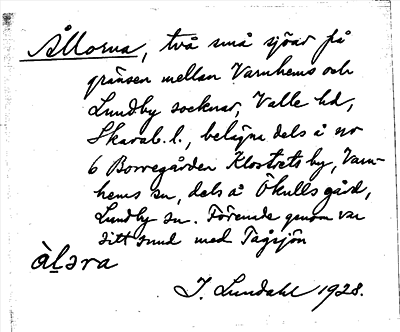 Ållorna, två små sjöar på
gränsen mellan Varnhems och
Lundby socknar, Valle hd,
Skarab. l., belägna dels å nr
6 Borregården Klostrets by, Varn-
hems sn, dels å Ökulls gård,
Lundby sn. Förenade genom var
sitt sund med Tågsjön
àl̠əra
I. Lundahl 1928.